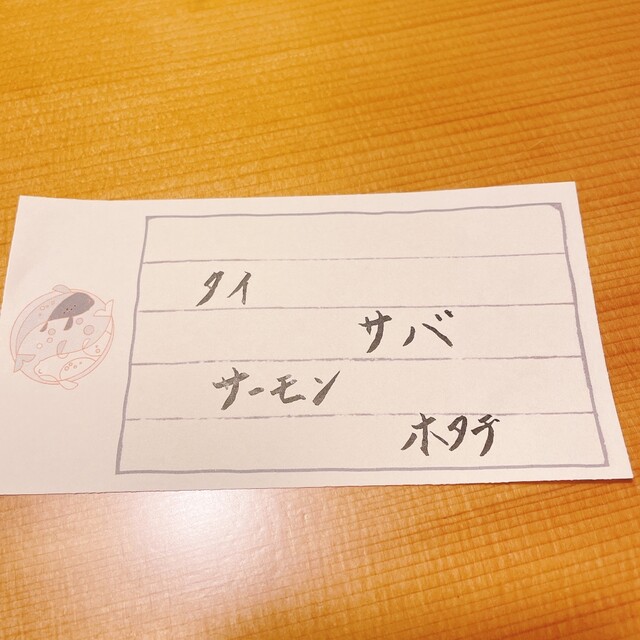 タイ
サバ
サーモン
ホタテ